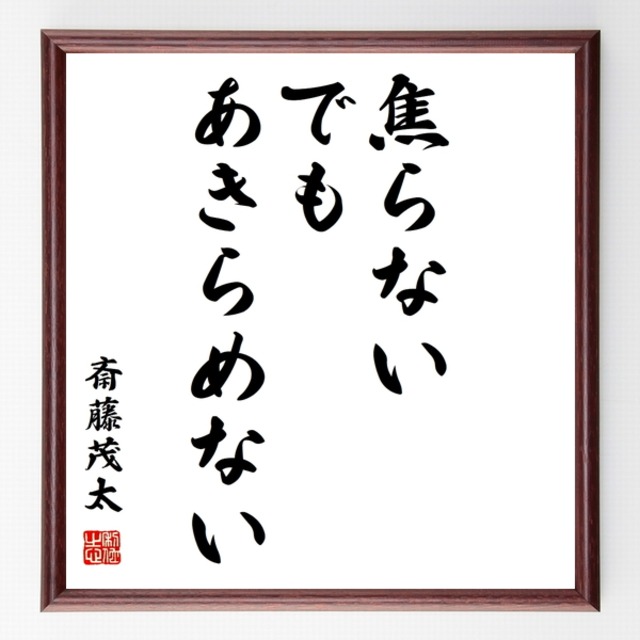 焦らない
でも
あきらめない
斎藤茂太